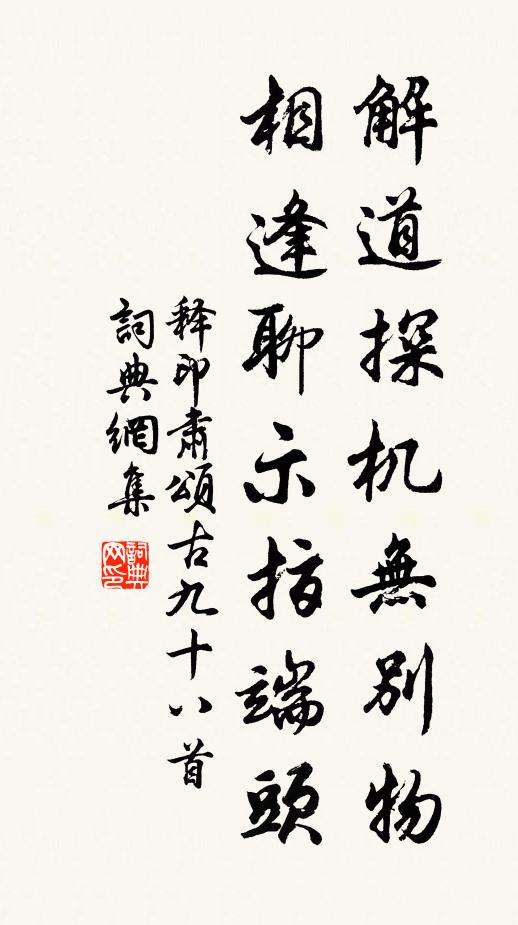 解道探机無別物
相逢聊示指端頭
释印肃頌古九十八首
詞典網集
詞典网印